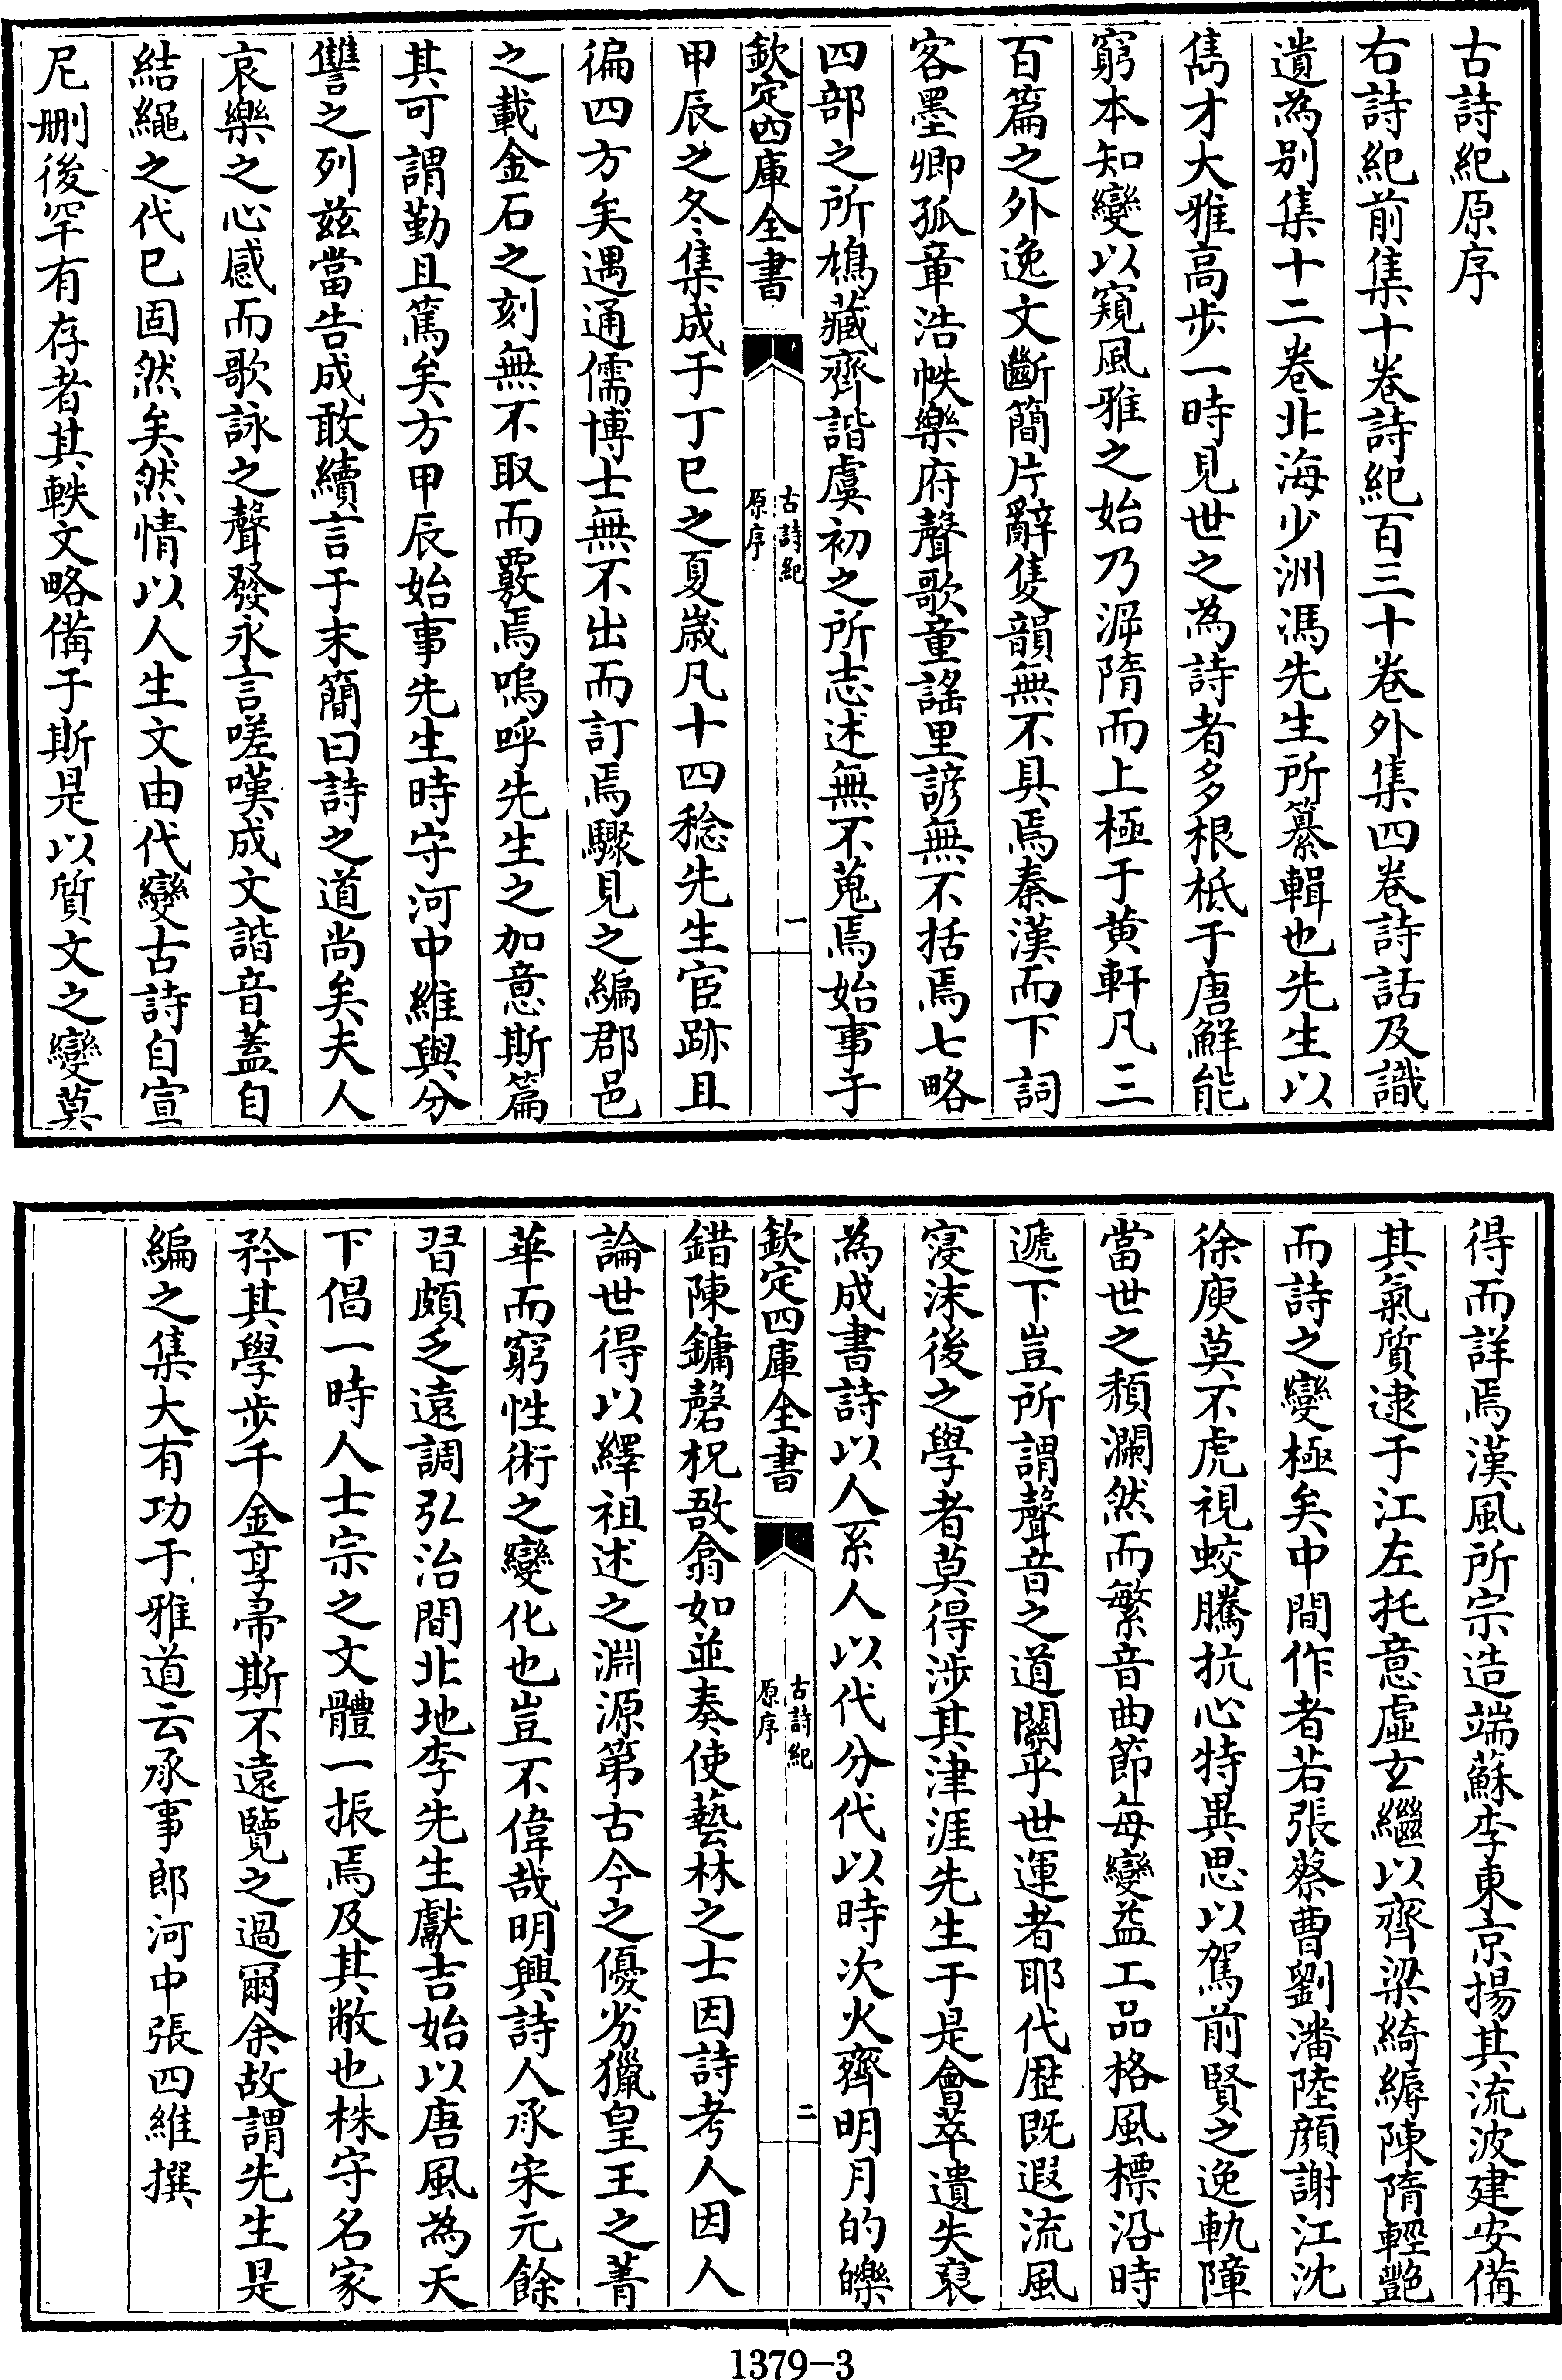 古詩紀原序
右詩紀前集十卷詩紀百三十卷外集四卷詩話及識
遺為別集十二卷北海少洲馮先生所纂輯也先生以
雋才大雅高步一時見世之為詩者多根柢于唐鮮能
窮本知變以窺風雅之始乃泝隋而上極于黄軒凡三
百篇之外逸文斷簡片辭隻韻無不具焉秦漢而下詞
客墨卿孤章浩帙樂府聲歌童謠里諺無不括焉七略
四部之所鳩藏齊諧虞初之所志述無不蒐焉始事于
欽定四庫全書
古詩紀
原序
一
甲辰之冬集成于丁巳之夏歲凡十四稔先生宦跡且
徧四方矣遇通儒博士無不出而訂焉驟見之編郡邑
之載金石之刻無不取而覈焉嗚呼先生之加意斯篇
其可謂勤且篤矣方甲辰始事先生時守河中維與分
讐之列兹當告成敢續言于末簡曰詩之道尚矣夫人
哀樂之心感而歌詠之聲發永言嗟嘆成文諧音蓋自
結繩之代已固然矣然情以人生文由代變古詩自宣
尼刪後罕有存者其軼文略備于斯是以質文之變莫
得而詳焉漢風所宗造端蘇李東京揚其流波建安備
其氣質逮于江左托意虛玄繼以齊梁綺縟陳隋輕艷
而詩之變極矣中間作者若張蔡曹劉潘陸顔謝江沈
徐庾莫不虎視蛟騰抗心特異思以駕前賢之逸軌障
當世之頽瀾然而繁音曲節每變益工品格風標沿時
遞下豈所謂聲音之道關乎世運者耶代歴既遐流風
寖沫後之學者莫得涉其津涯先生于是會萃遺失裒
為成書詩以人系人以代分代以時次火齊明月的皪
欽定四庫全書
古詩紀
原序
二
錯陳鏞磬柷敔翕如並奏使藝林之士因詩考人因人
論世得以繹祖述之淵源第古今之優劣獵皇王之菁
華而窮性術之變化也豈不偉哉明興詩人承宋元餘
習頗乏遠調弘治間北地李先生獻吉始以唐風為天
下倡一時人士宗之文體一振焉及其敝也株守名家
矜其學步千金享帚斯不遠覽之過爾余故謂先生是
編之集大有功于雅道云承事郎河中張四維撰
1379-3